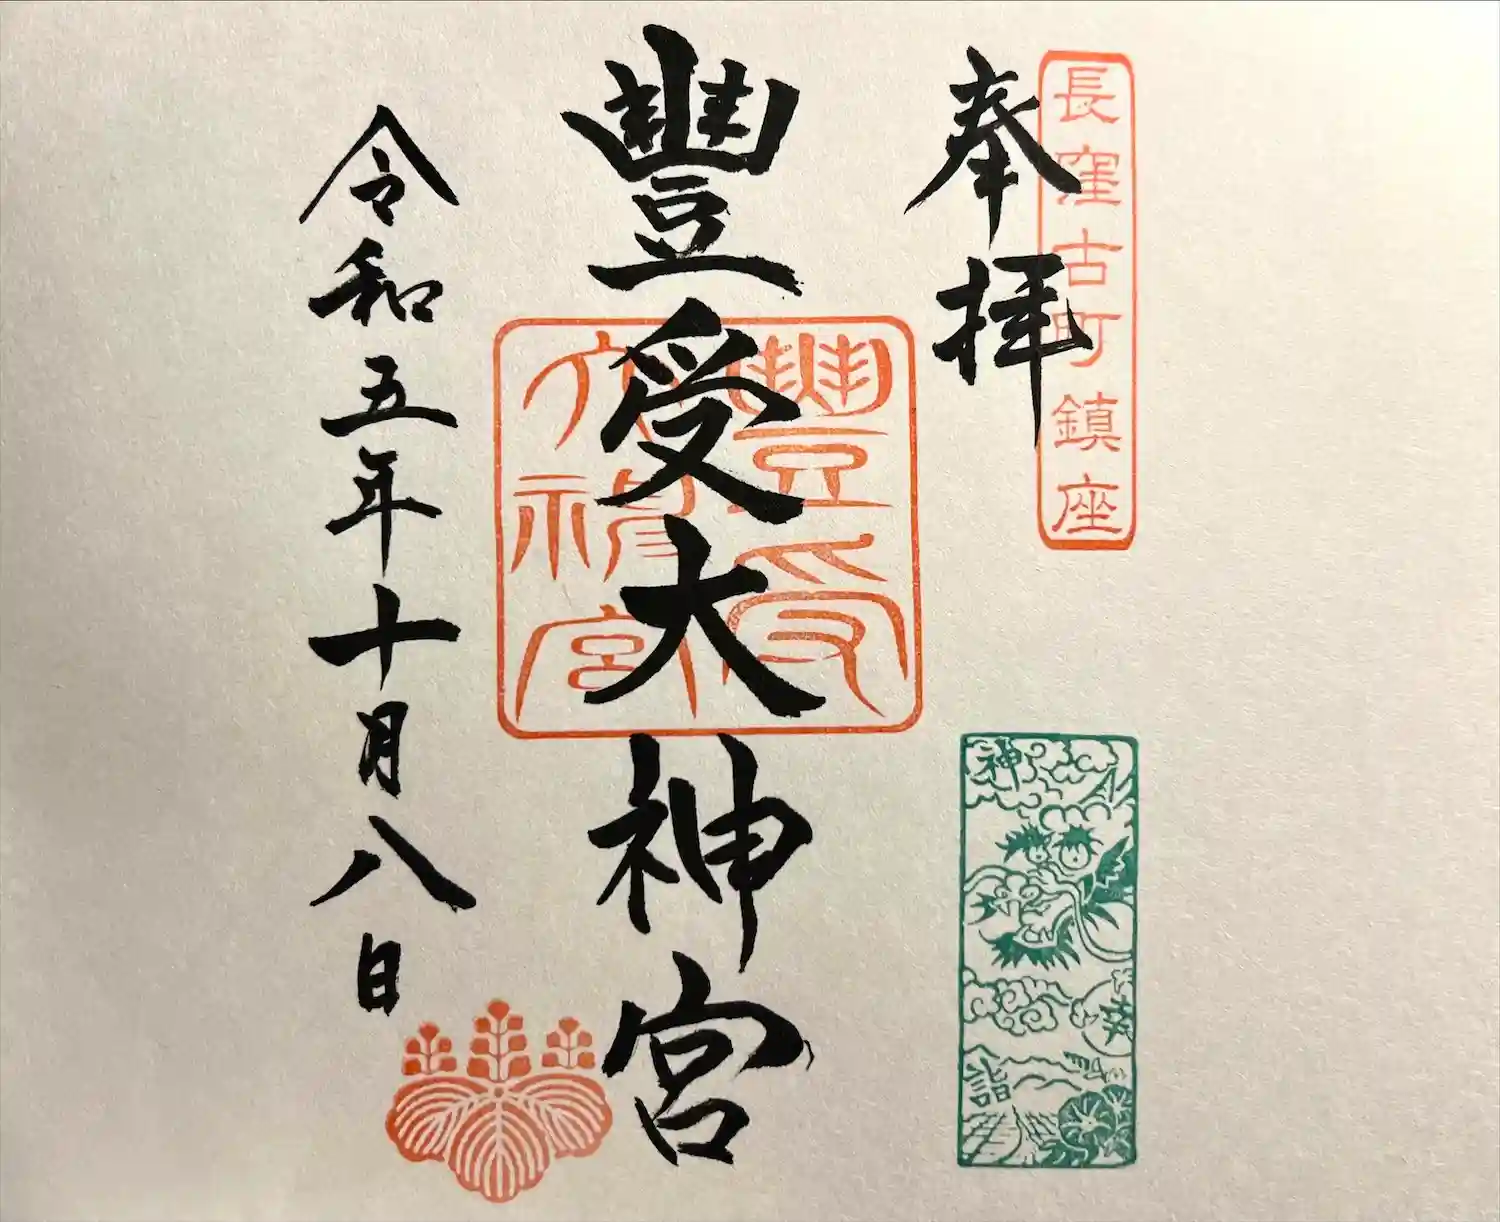 長窪古町鎮座
奉拝
豐受大神宮
豐受
大神宮
令和五年十月八日
神
葵
詣